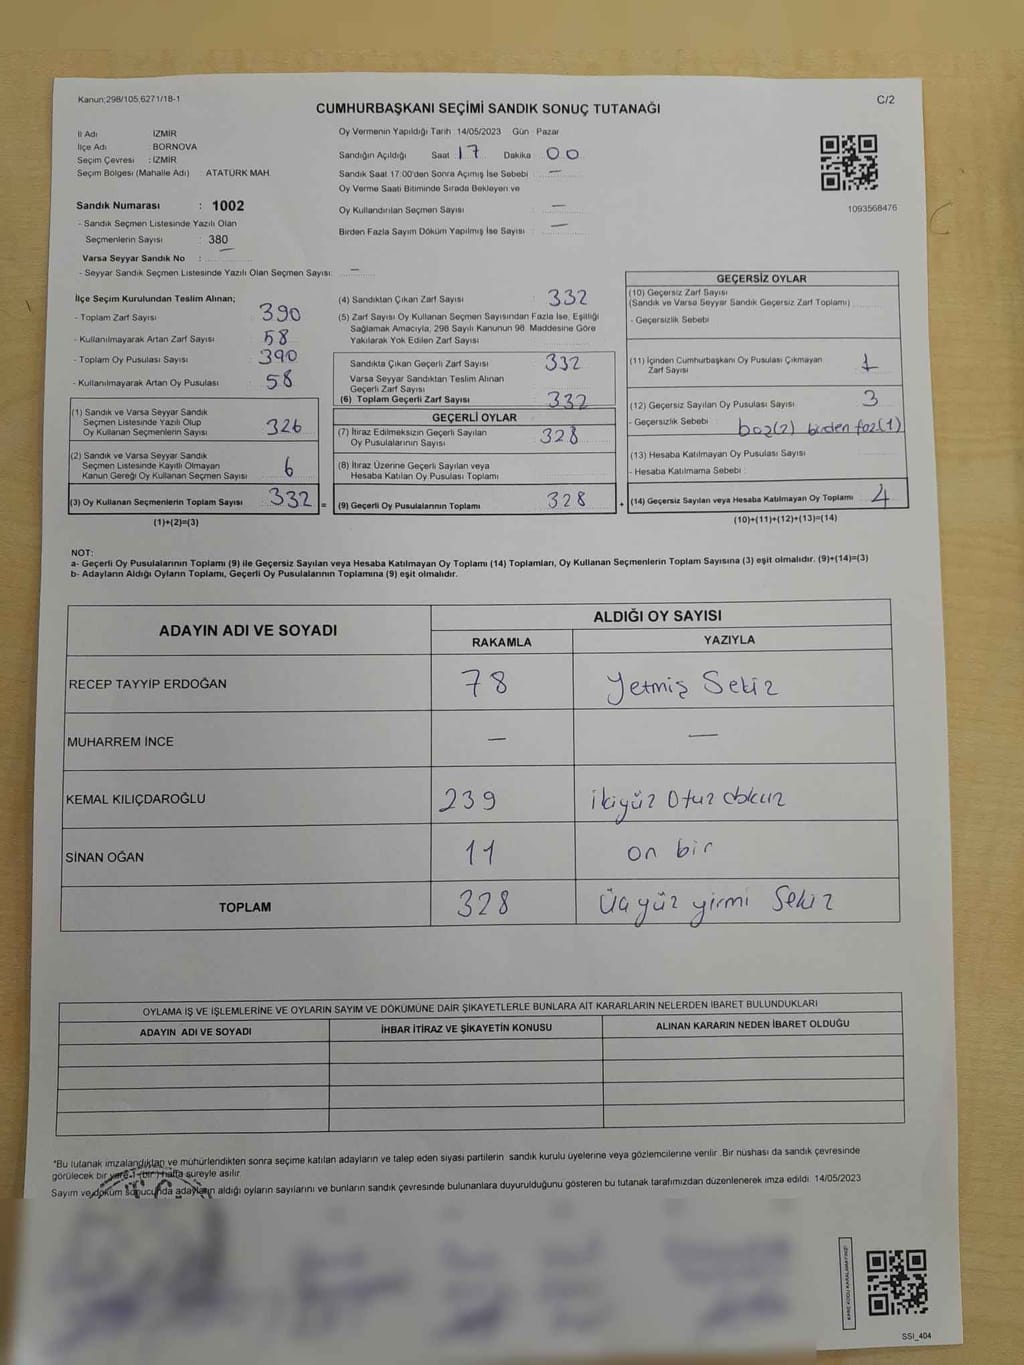 Kanun;298/105,6271/18-1
C/2
CUMHURBAŞKANI SEÇİMİ SANDIK SONUÇ TUTANAĞI
İl Adı İZMİR
İlçe Adı : BORNOVA
Seçim Çevresi : İZMİR
Seçim Bölgesi (Mahalle Adı) : ATATÜRK MAH.
Sandık Numarası : 1002
- Sandık Seçmen Listesinde Yazılı Olan
Seçmenlerin Sayısı : 380
Varsa Seyyar Sandık No :
- Seyyar Sandık Seçmen Listesinde Yazılı Olan Seçmen Sayısı: —
Oy Vermenin Yapıldığı Tarih 14/05/2023 Gün Pazar
Sandığın Açıldığı Saat 17 Dakika 00
Sandık Saat 17:00'den Sonra Açılmış İse Sebebi : —
Oy Verme Saati Bitiminde Sırada Bekleyen ve
Oy Kullandırılan Seçmen Sayısı : —
Birden Fazla Sayım Döküm Yapılmış İse Sayısı : —
1093568476
İlçe Seçim Kurulundan Teslim Alınan;
- Toplam Zarf Sayısı : 390
- Kullanılmayarak Artan Zarf Sayısı : 58
- Toplam Oy Pusulası Sayısı : 390
- Kullanılmayarak Artan Oy Pusulası : 58
(1) Sandık ve Varsa Seyyar Sandık
Seçmen Listesinde Yazılı Olup
Oy Kullanan Seçmenlerin Sayısı 326
(2) Sandık ve Varsa Seyyar Sandık
Seçmen Listesinde Kayıtlı Olmayan
Kanun Gereği Oy Kullanan Seçmen Sayısı 6
(3) Oy Kullanan Seçmenlerin Toplam Sayısı 332 =
(1)+(2)=(3)
(4) Sandıktan Çıkan Zarf Sayısı : 332
(5) Zarf Sayısı Oy Kullanan Seçmen Sayısından Fazla İse, Eşitliği
Sağlamak Amacıyla, 298 Sayılı Kanunun 98. Maddesine Göre
Yakılarak Yok Edilen Zarf Sayısı
Sandıkta Çıkan Geçerli Zarf Sayısı 332
Varsa Seyyar Sandıktan Teslim Alınan
Geçerli Zarf Sayısı
(6) Toplam Geçerli Zarf Sayısı 332
GEÇERLİ OYLAR
(7) İtiraz Edilmeksizin Geçerli Sayılan
Oy Pusulalarının Sayısı 328
(8) İtiraz Üzerine Geçerli Sayılan veya
Hesaba Katılan Oy Pusulası Toplamı
(9) Geçerli Oy Pusulalarının Toplamı 328 +
GEÇERSİZ OYLAR
(10) Geçersiz Zarf Sayısı
(Sandık ve Varsa Seyyar Sandık Geçersiz Zarf Toplamı)
- Geçersizlik Sebebi
(11) İçinden Cumhurbaşkanı Oy Pusulası Çıkmayan
Zarf Sayısı 1
(12) Geçersiz Sayılan Oy Pusulası Sayısı 3
- Geçersizlik Sebebi
(13) Hesaba Katılmayan Oy Pusulası Sayısı
- Hesaba Katılmama Sebebi :
(14) Geçersiz Sayılan veya Hesaba Katılmayan Oy Toplamı 4
(10)+(11)+(12)+(13)=(14)
NOT:
a- Geçerli Oy Pusulalarının Toplamı (9) ile Geçersiz Sayılan veya Hesaba Katılmayan Oy Toplamı (14) Toplamları, Oy Kullanan Seçmenlerin Toplam Sayısına (3) eşit olmalıdır. (9)+(14)=(3)
b- Adayların Aldığı Oyların Toplamı, Geçerli Oy Pusulalarının Toplamına (9) eşit olmalıdır.
ADAYIN ADI VE SOYADI ALDIĞI OY SAYISI
RAKAMLA YAZIYLA
RECEP TAYYİP ERDOĞAN 78 Yetmiş Sekiz
MUHARREM İNCE — —
KEMAL KILIÇDAROĞLU 239 ikiyüz Otuz dokuz
SİNAN OĞAN 11 on bir
TOPLAM 328 Üçyüz yirmi Sekiz
OYLAMA İŞ VE İŞLEMLERİNE VE OYLARIN SAYIM VE DÖKÜMÜNE DAİR ŞİKAYETLERLE BUNLARA AİT KARARLARIN NELERDEN İBARET BULUNDUKLARI
ADAYIN ADI VE SOYADI İHBAR İTİRAZ VE ŞİKAYETİN KONUSU ALINAN KARARIN NEDEN İBARET OLDUĞU
*Bu tutanak imzalandıktan ve mühürlendikten sonra seçime katılan adayların ve talep eden siyasi partilerin sandık kurulu üyelerine veya gözlemcilerine verilir. Bir nüshası da sandık çevresinde
görülecek bir yere 1 (bir) hafta süreyle asılır.
Sayım ve döküm sonucunda adayların aldığı oyların sayılarını ve bunların sandık çevresinde bulunanlara duyurulduğunu gösteren bu tutanak tarafımızdan düzenlenerek imza edildi. 14/05/2023
SSI_404